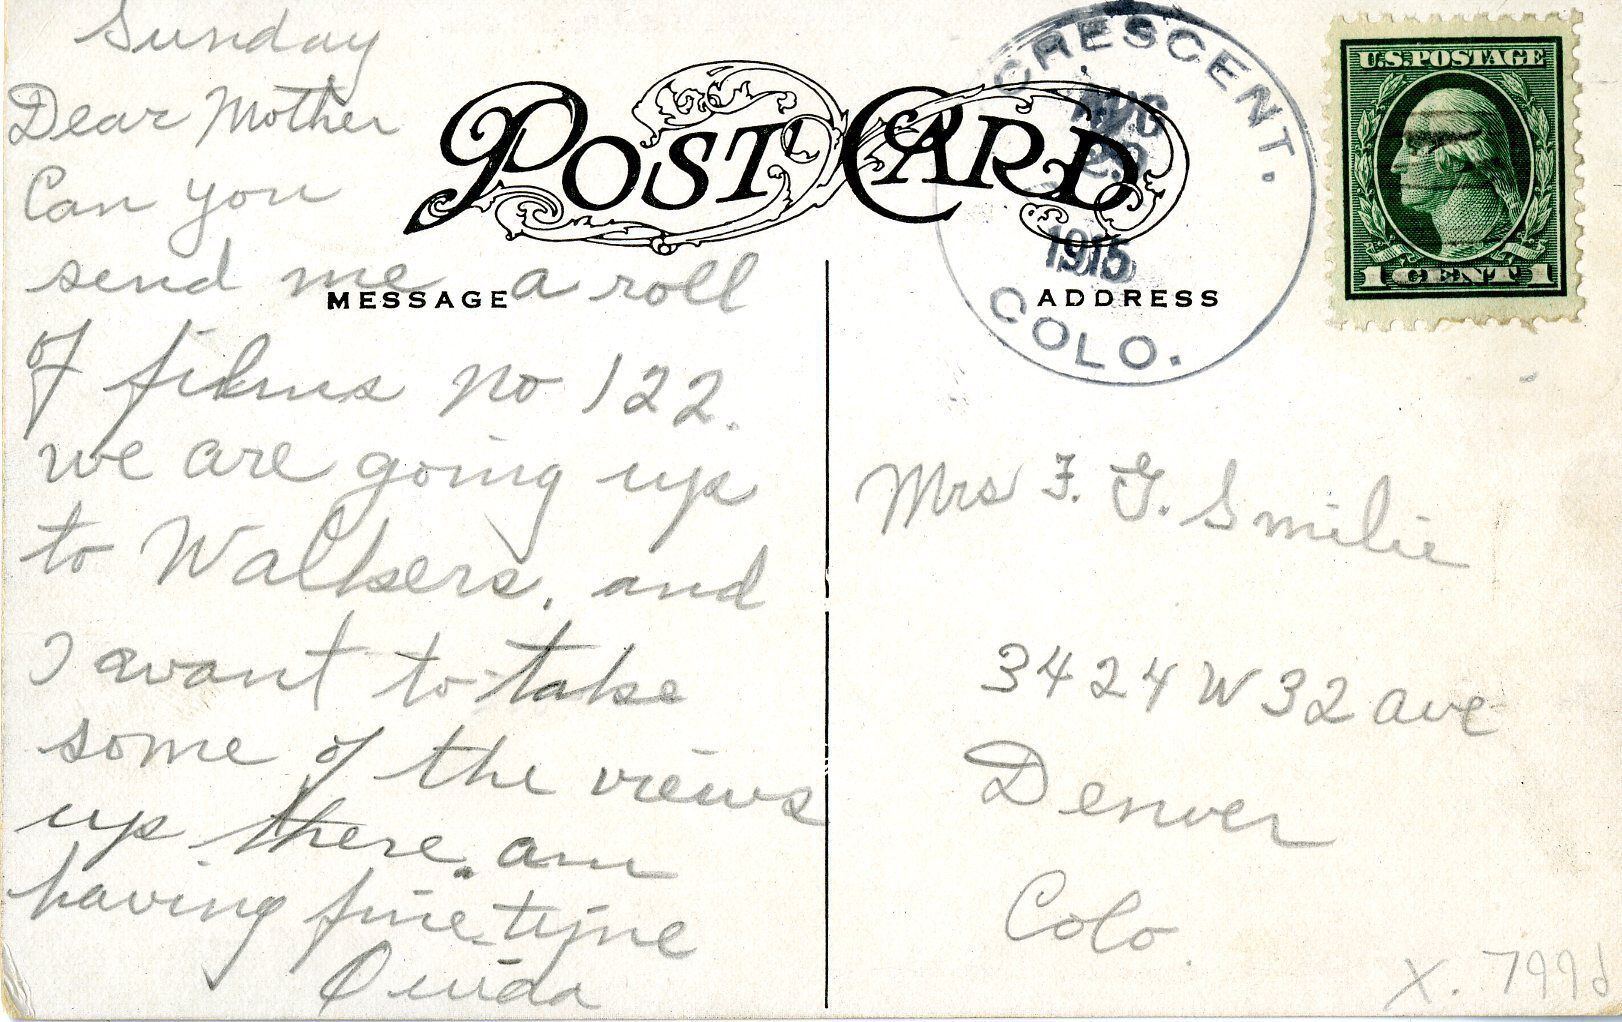 Sunday
Dear Mother
Can you
send me a roll
of films no 122.
we are going up
to Walkers, and
I want to take
some of the views
up there. am
having fine time
POST CARD
MESSAGE
ADDRESS
CRESCENT.
AUG
29
1915
COLO.
U.S. POSTAGE
1 CENT 1
Mrs F. G. Smilie
3424 W 32 ave
Denver
Colo.
X. 799d